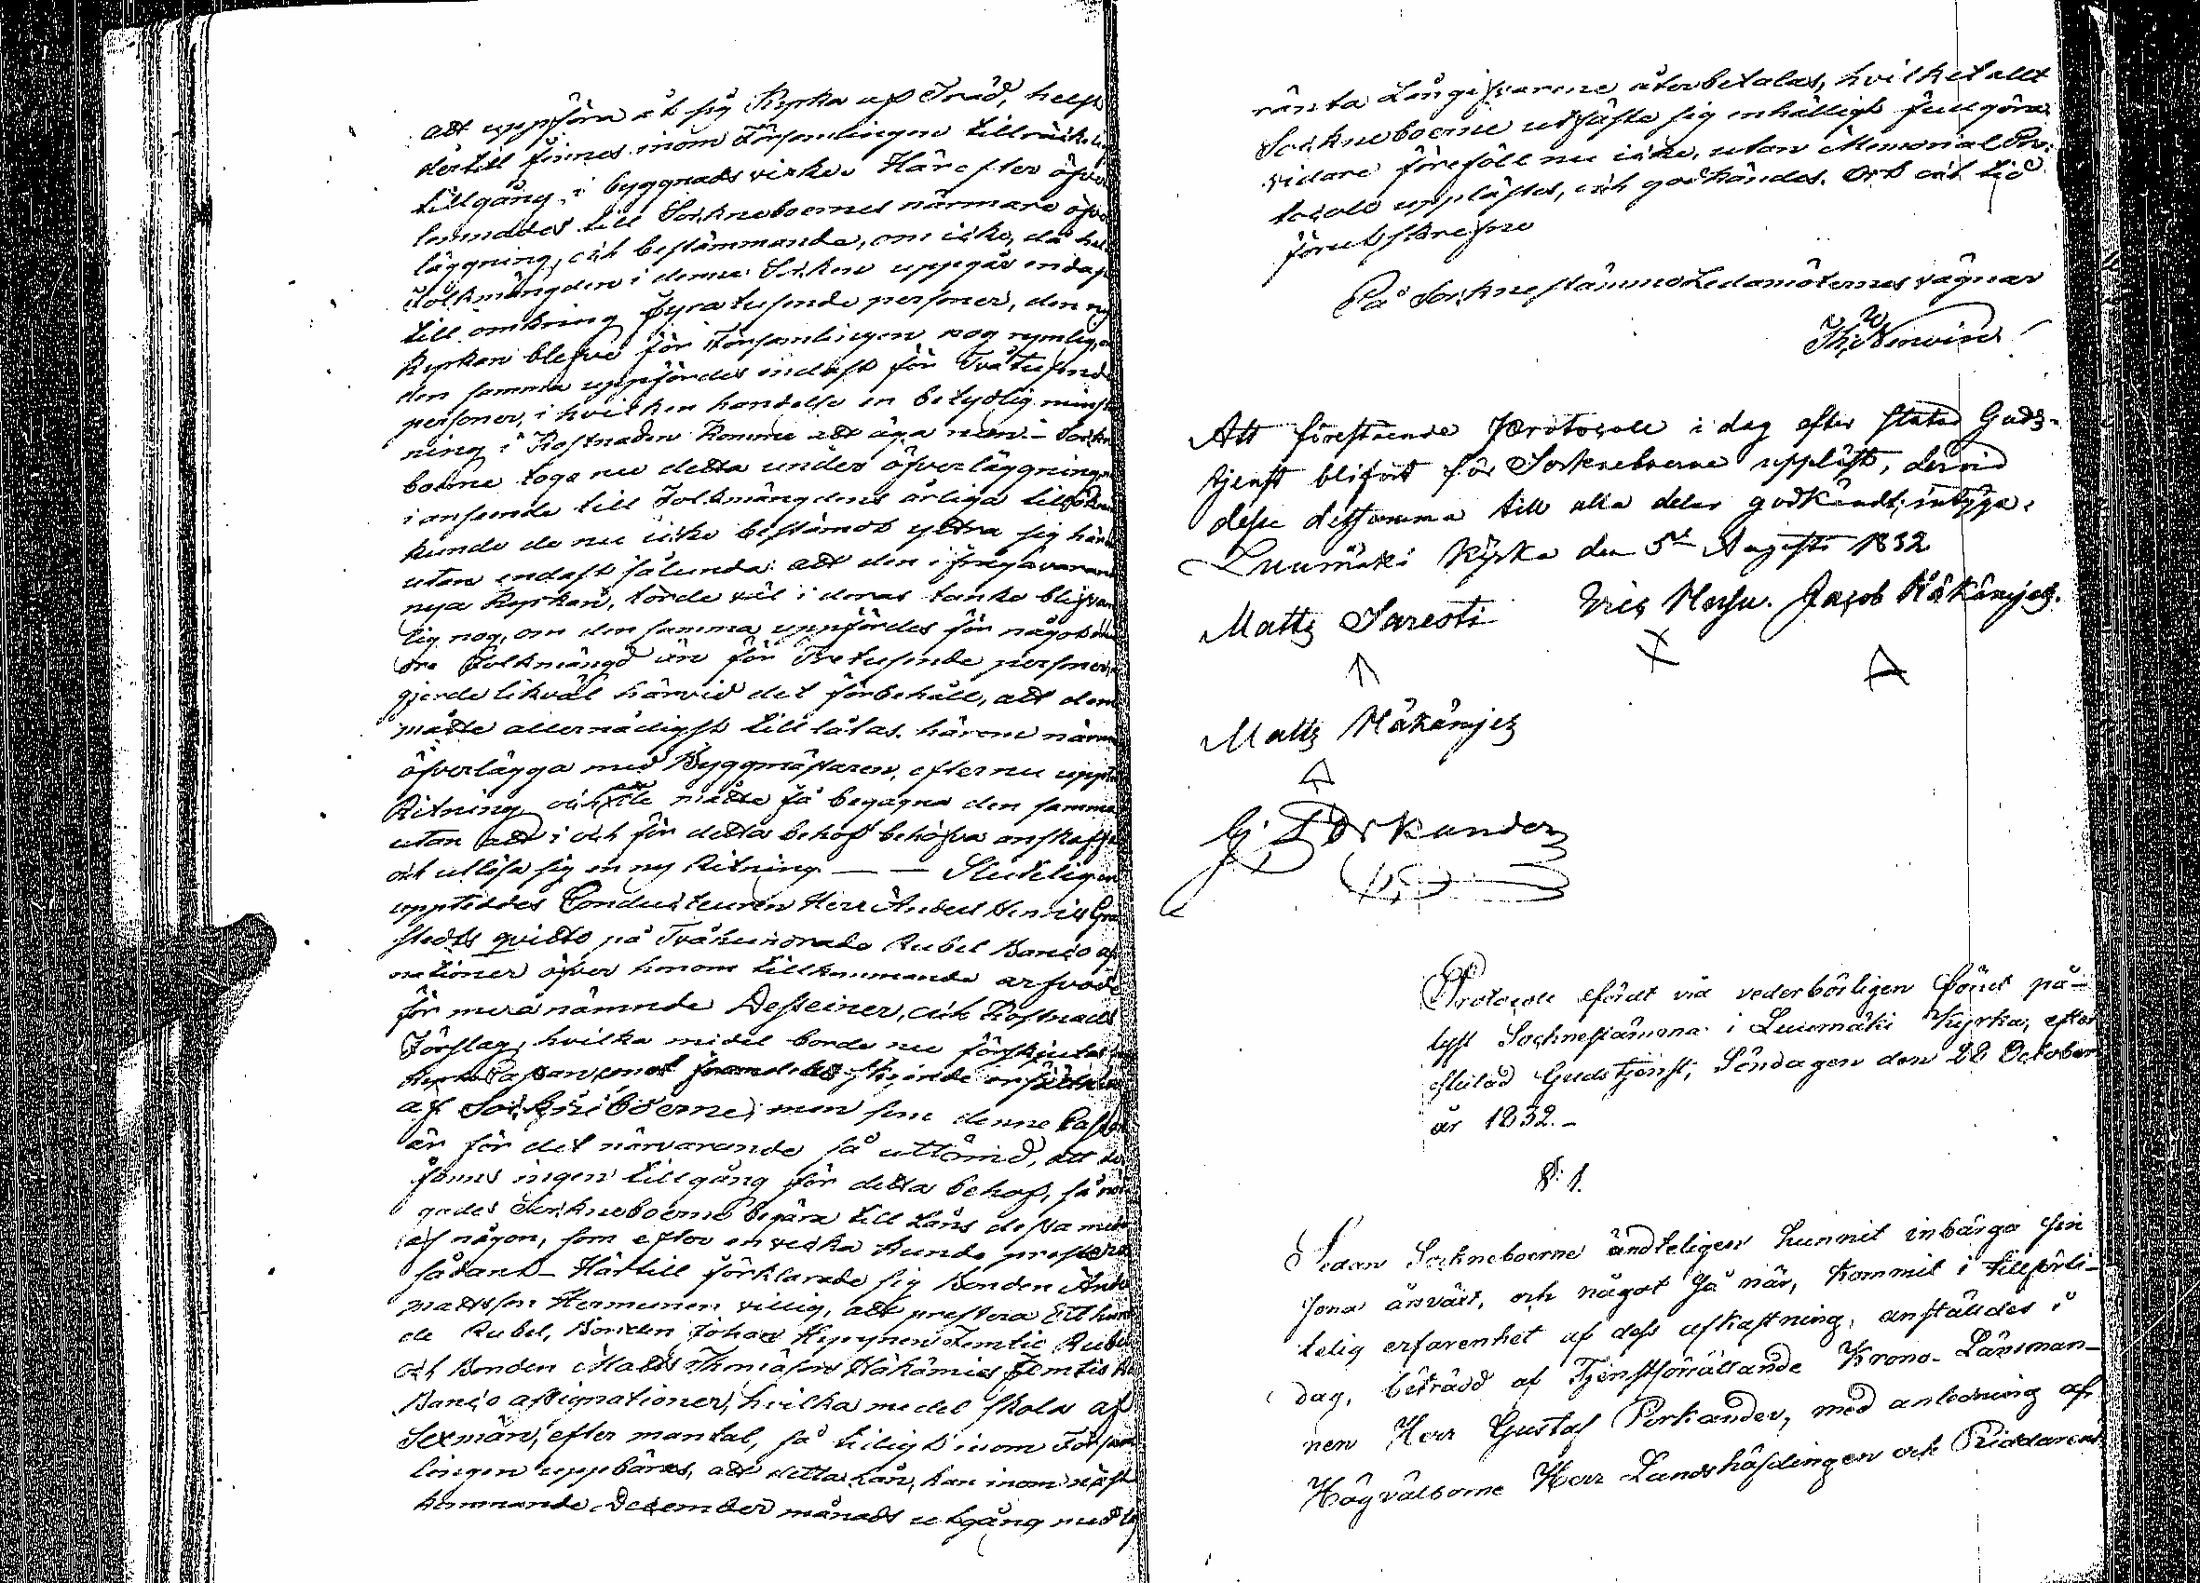 att uppföra åt sig Kyrka af Träd, helst
dertill finnes inom Församlingen tillräckelig
tillgång i byggnadsvirke. Härefter öfver
lemnades till Sockneboernes närmare öfver
läggning, och bestämmande, om icke, då hela
Folkmängden i denne Socken uppgår endast
till omkring fyratusende personer, den nya
Kyrkan blefve för Församlingen nog rymlig, om
den samma uppfördes endast för Tvåtusende
personer, i hvilken händelse en betydlig minsk
ning i Kostnaden komme att äga rum. – Sockne
boerne togo nu detta under öfverläggning, men
i anseende till Folkmängdens årliga tillökning
kunde de nu icke bestämdt yttra sig härom
utan endast sålunda: att den i frågavarande
nya Kyrkan, torde väl i deras tanke blifva rym
lig nog, om den samma uppfördes för något min
dre Folkmängd än för Tretusende personer,
gjorde likväl härvid det förbehåll, att dem
måtte allernådigst tillåtas, härom närmare
öfverlägga med Byggmästaren, efter nu upp
Ritning och måtte få begagna den samma
utan att i och för detta behof behöfva anskaffa
och utlösa sig en ny Ritning — — Sluteligen
uppteddes Conducteuren Herr Anders Henric Gran
stedts qvitto på Tvåhundrade Rubel Banco assig
nationer öfver honom tillkommande arfvode
för meranämnde Desseiner, och Kostnads
Förslag, hvilka medel borde nu förskjutas
Kyrko Cassan, emot framdeles skeende ersättning
af Sockneboerne; men som denne Cassa
är för det närvarande så uttömd, att der
fanns ingen tillgång för detta behof, så nöd
gades Sockneboerne begära till Låns dessa medel
af någon, som efter en vecka kunde prestera
sådant – Härtill förklarade sig Bonden Anders
Mattsson Hermunen villig, att prestera Ett hundra
de Rubel, Bonden Johan Femtio Rubel
och Bonden Matts Thomasson Häkämies Femtio Rubel
Banco assignationer, hvilka medel skola af
Sexmän, efter mantal, så tidigt inom Försam
lingen uppbäras, att detta Lån, kan inom näst
kommande December månads utgång med lag
ränta Långifvarene återbetalas, hvilket allt
Sockneboerne utfäste sig enhälligt fullgöra.
vidare föreföll nu icke, utan Memorial Pro-
tocoll upplästes, och godkändes. Ort och tid
förutskrefne
På Sockne stämmo Ledamöternes vägnar
Att förestående Protocoll i dag efter slutad Guds-
tjenst blifvit för Sockneboerne uppläst, dervid
desse detsamma till alla delar godkändt; intyga.
Luumäki Kyrka den 5te Augusti 1832
Matts Sareoti Eric Heysu. Jacob Häkämjes.
Matts Häkämjes
G. Porkander
Protocoll fördt vid vederbörligen förut på-
lyst Sockneståmma i Luumäki Kyrka, efter
slutad Gudstjenst, Söndagen den 28 October
år 1832. –
§. 1.
Sedan Sockneboerne ändteligen hunnit inbärga sin
sina årsväxt, och något så när, kommit i tillförli-
telig erfarenhet af dess afkastning, anställdes i
dag, biträdd af Tjenstförrättande Krono-Länsman-
nen Herr Gustaf Porkander, med anledning af
Högvälborne Herr Landshöfdingen och Riddarens